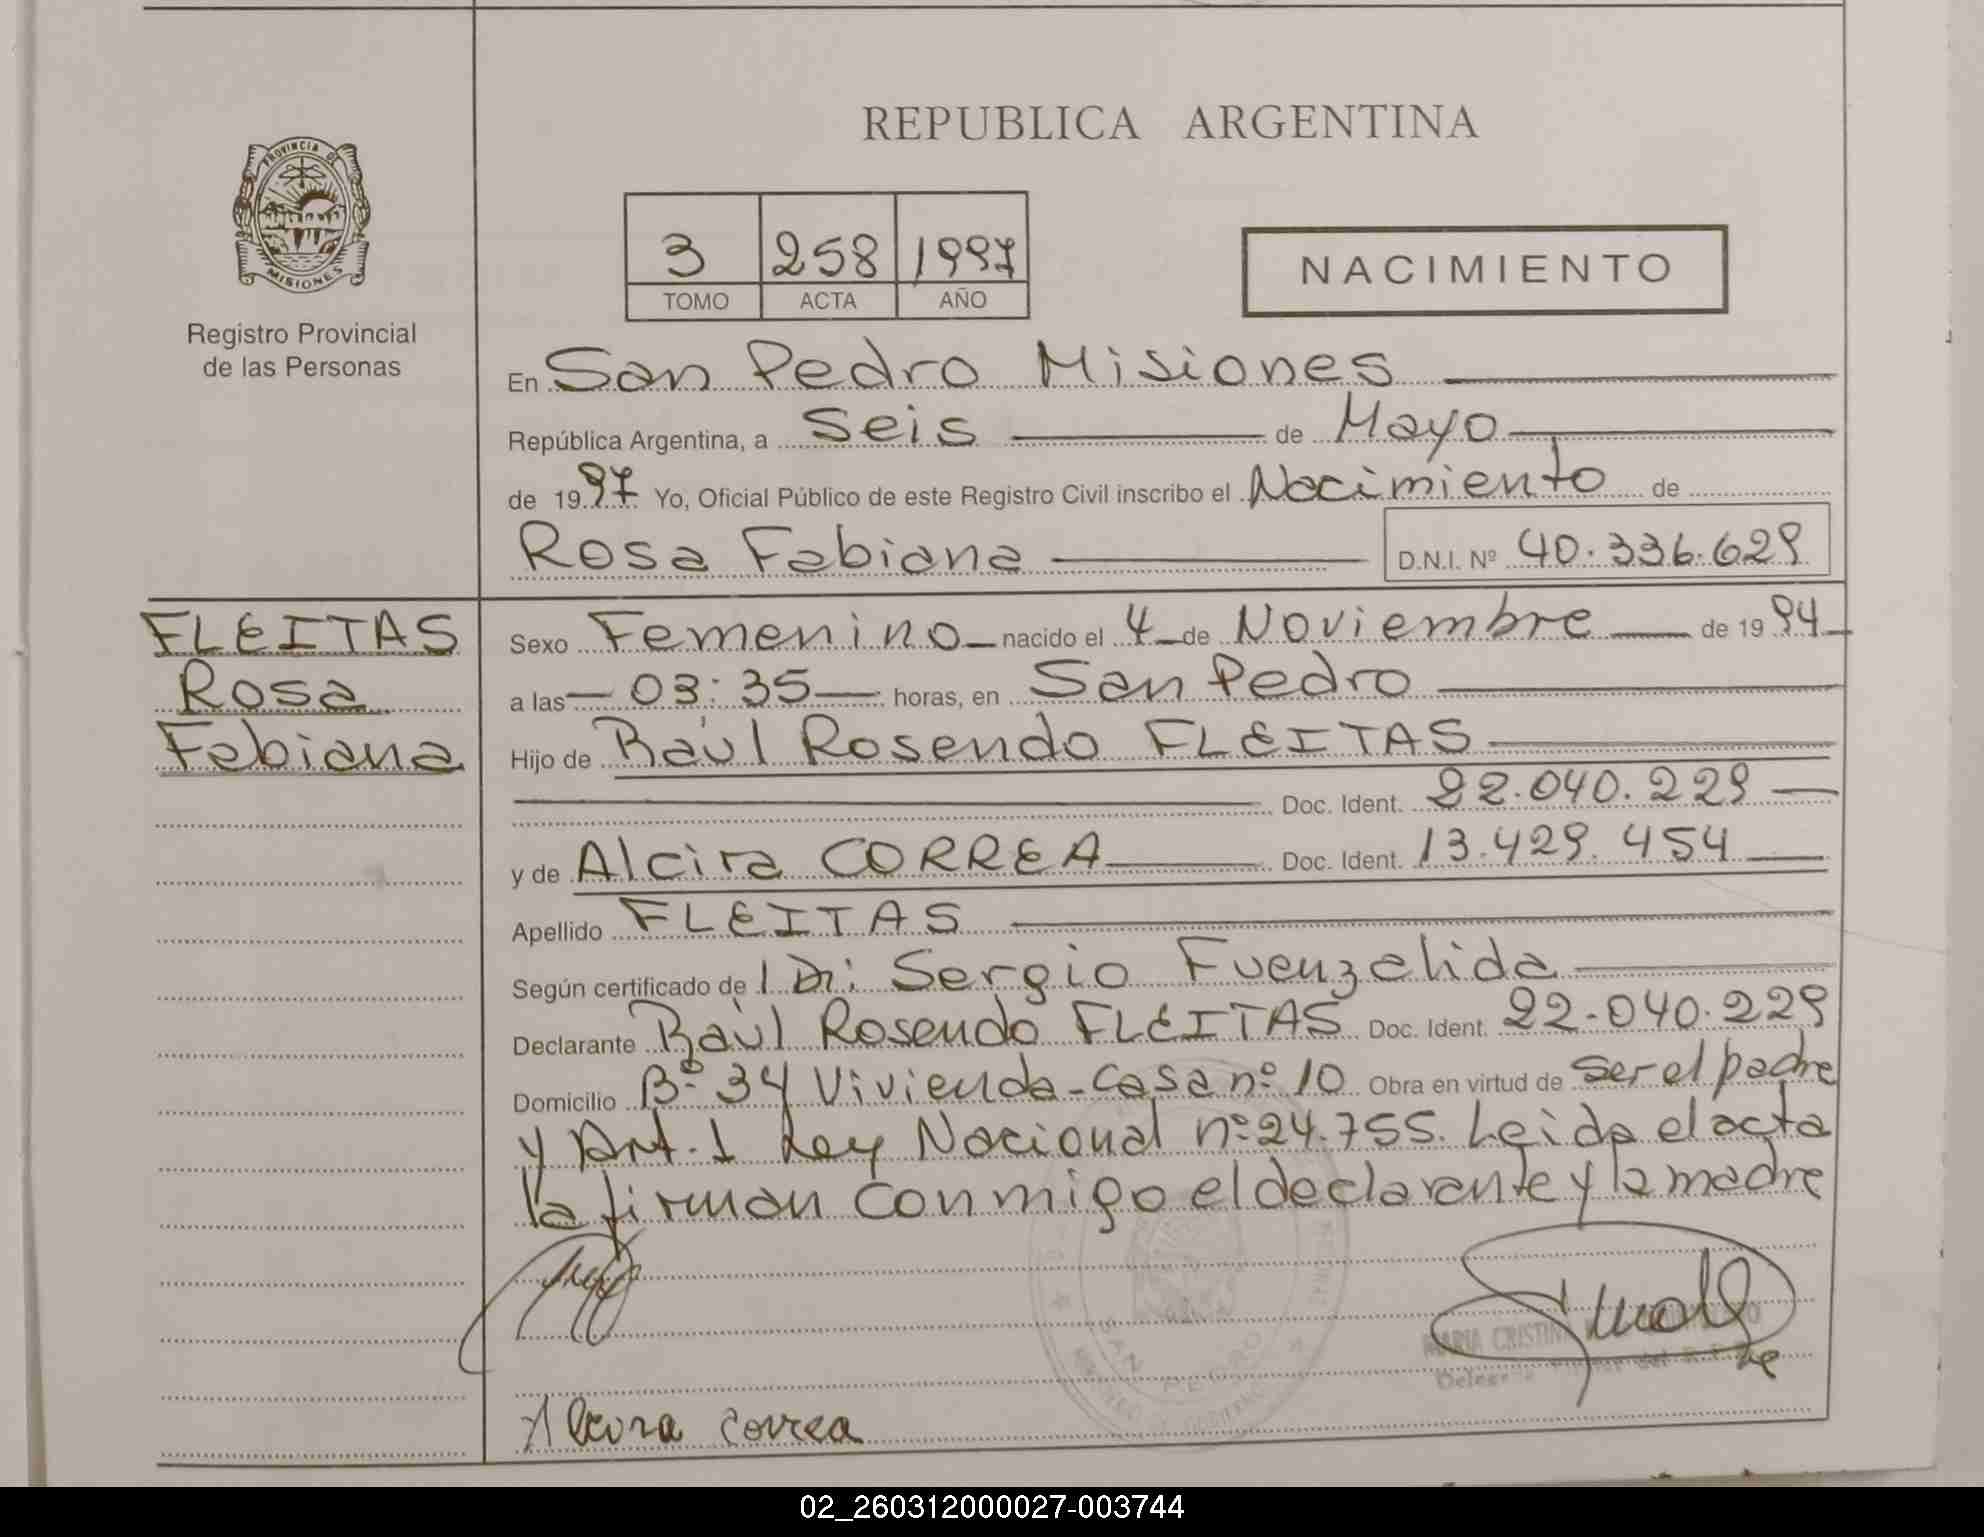 REPUBLICA ARGENTINA
PROVINCIA DE
MISIONES
Registro Provincial
de las Personas
3 258 1997
TOMO ACTA AÑO
NACIMIENTO
En San Pedro Misiones
República Argentina, a Seis de Mayo
de 1997 Yo, Oficial Público de este Registro Civil inscribo el Nacimiento de
Rosa Fabiana D.N.I. Nº 40.336.629
FLEITAS
Rosa
Fabiana
Sexo Femenino nacido el 4 de Noviembre de 1994
a las 03:35 horas, en San Pedro
Hijo de Raúl Rosendo FLEITAS
Doc. Ident. 22.040.229
y de Alcira CORREA Doc. Ident. 13.429.454
Apellido FLEITAS
Según certificado de l Dr: Sergio Fuenzalida
Declarante Raúl Rosendo FLEITAS Doc. Ident. 22.040.229
Domicilio Bº 34 Vivienda - Casa nº 10 Obra en virtud de ser el padre
y Art. 1 Ley Nacional nº 24.755. Leida el acta
la firman conmigo el declarante y la madre
MARIA CRISTINA
SAN PEDRO
Alcira Correa
02_260312000027-003744